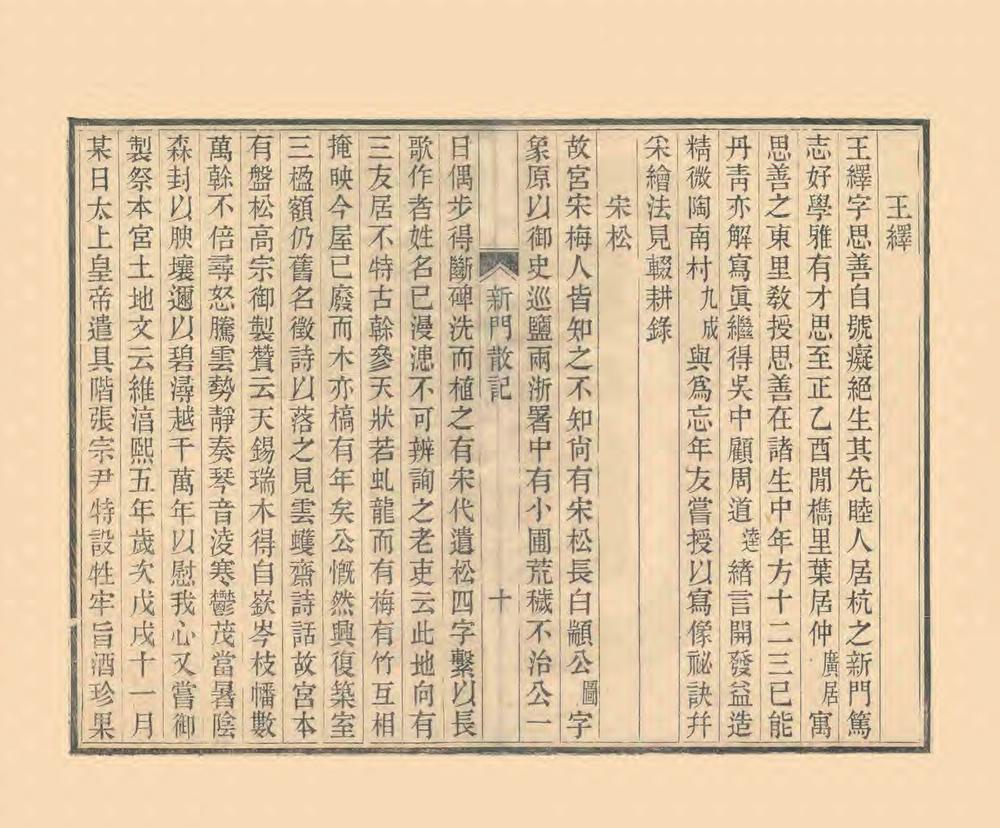 王繹
王繹字思善自號癡絕生其先睦人居杭之新門篤
志好學雅有才思至正乙酉閒檇里葉居仲廣居寓
思善之東里敎授思善在諸生中年方十二三已能
丹靑亦解寫眞繼得吳中顧周道逵緖言開發益造
精微陶南村九成與爲忘年友嘗授以寫像祕訣幷
采繪法見輟耕錄
宋松
故宮宋梅人皆知之不知尙有宋松長白顓公圖字
象原以御史巡鹽兩浙署中有小圃荒穢不治公一
新門散記
十
日偶步得斷碑洗而植之有宋代遺松四字繫以長
歌作者姓名已漫漶不可辨詢之老吏云此地向有
三友居不特古榦參天狀若虬龍而有梅有竹互相
掩映今屋已廢而木亦槁有年矣公慨然興復築室
三楹額仍舊名徵詩以落之見雲蠖齋詩話故宮本
有盤松高宗御製贊云天錫瑞木得自嶔岑枝幡數
萬榦不倍尋怒騰雲勢靜奏琴音淩寒鬱茂當暑陰
森封以腴壤邇以碧潯越千萬年以慰我心又嘗御
製祭本宮土地文云維淳熙五年歲次戊戌十一月
某日太上皇帝遣具階張宗尹特設牲牢旨酒珍果